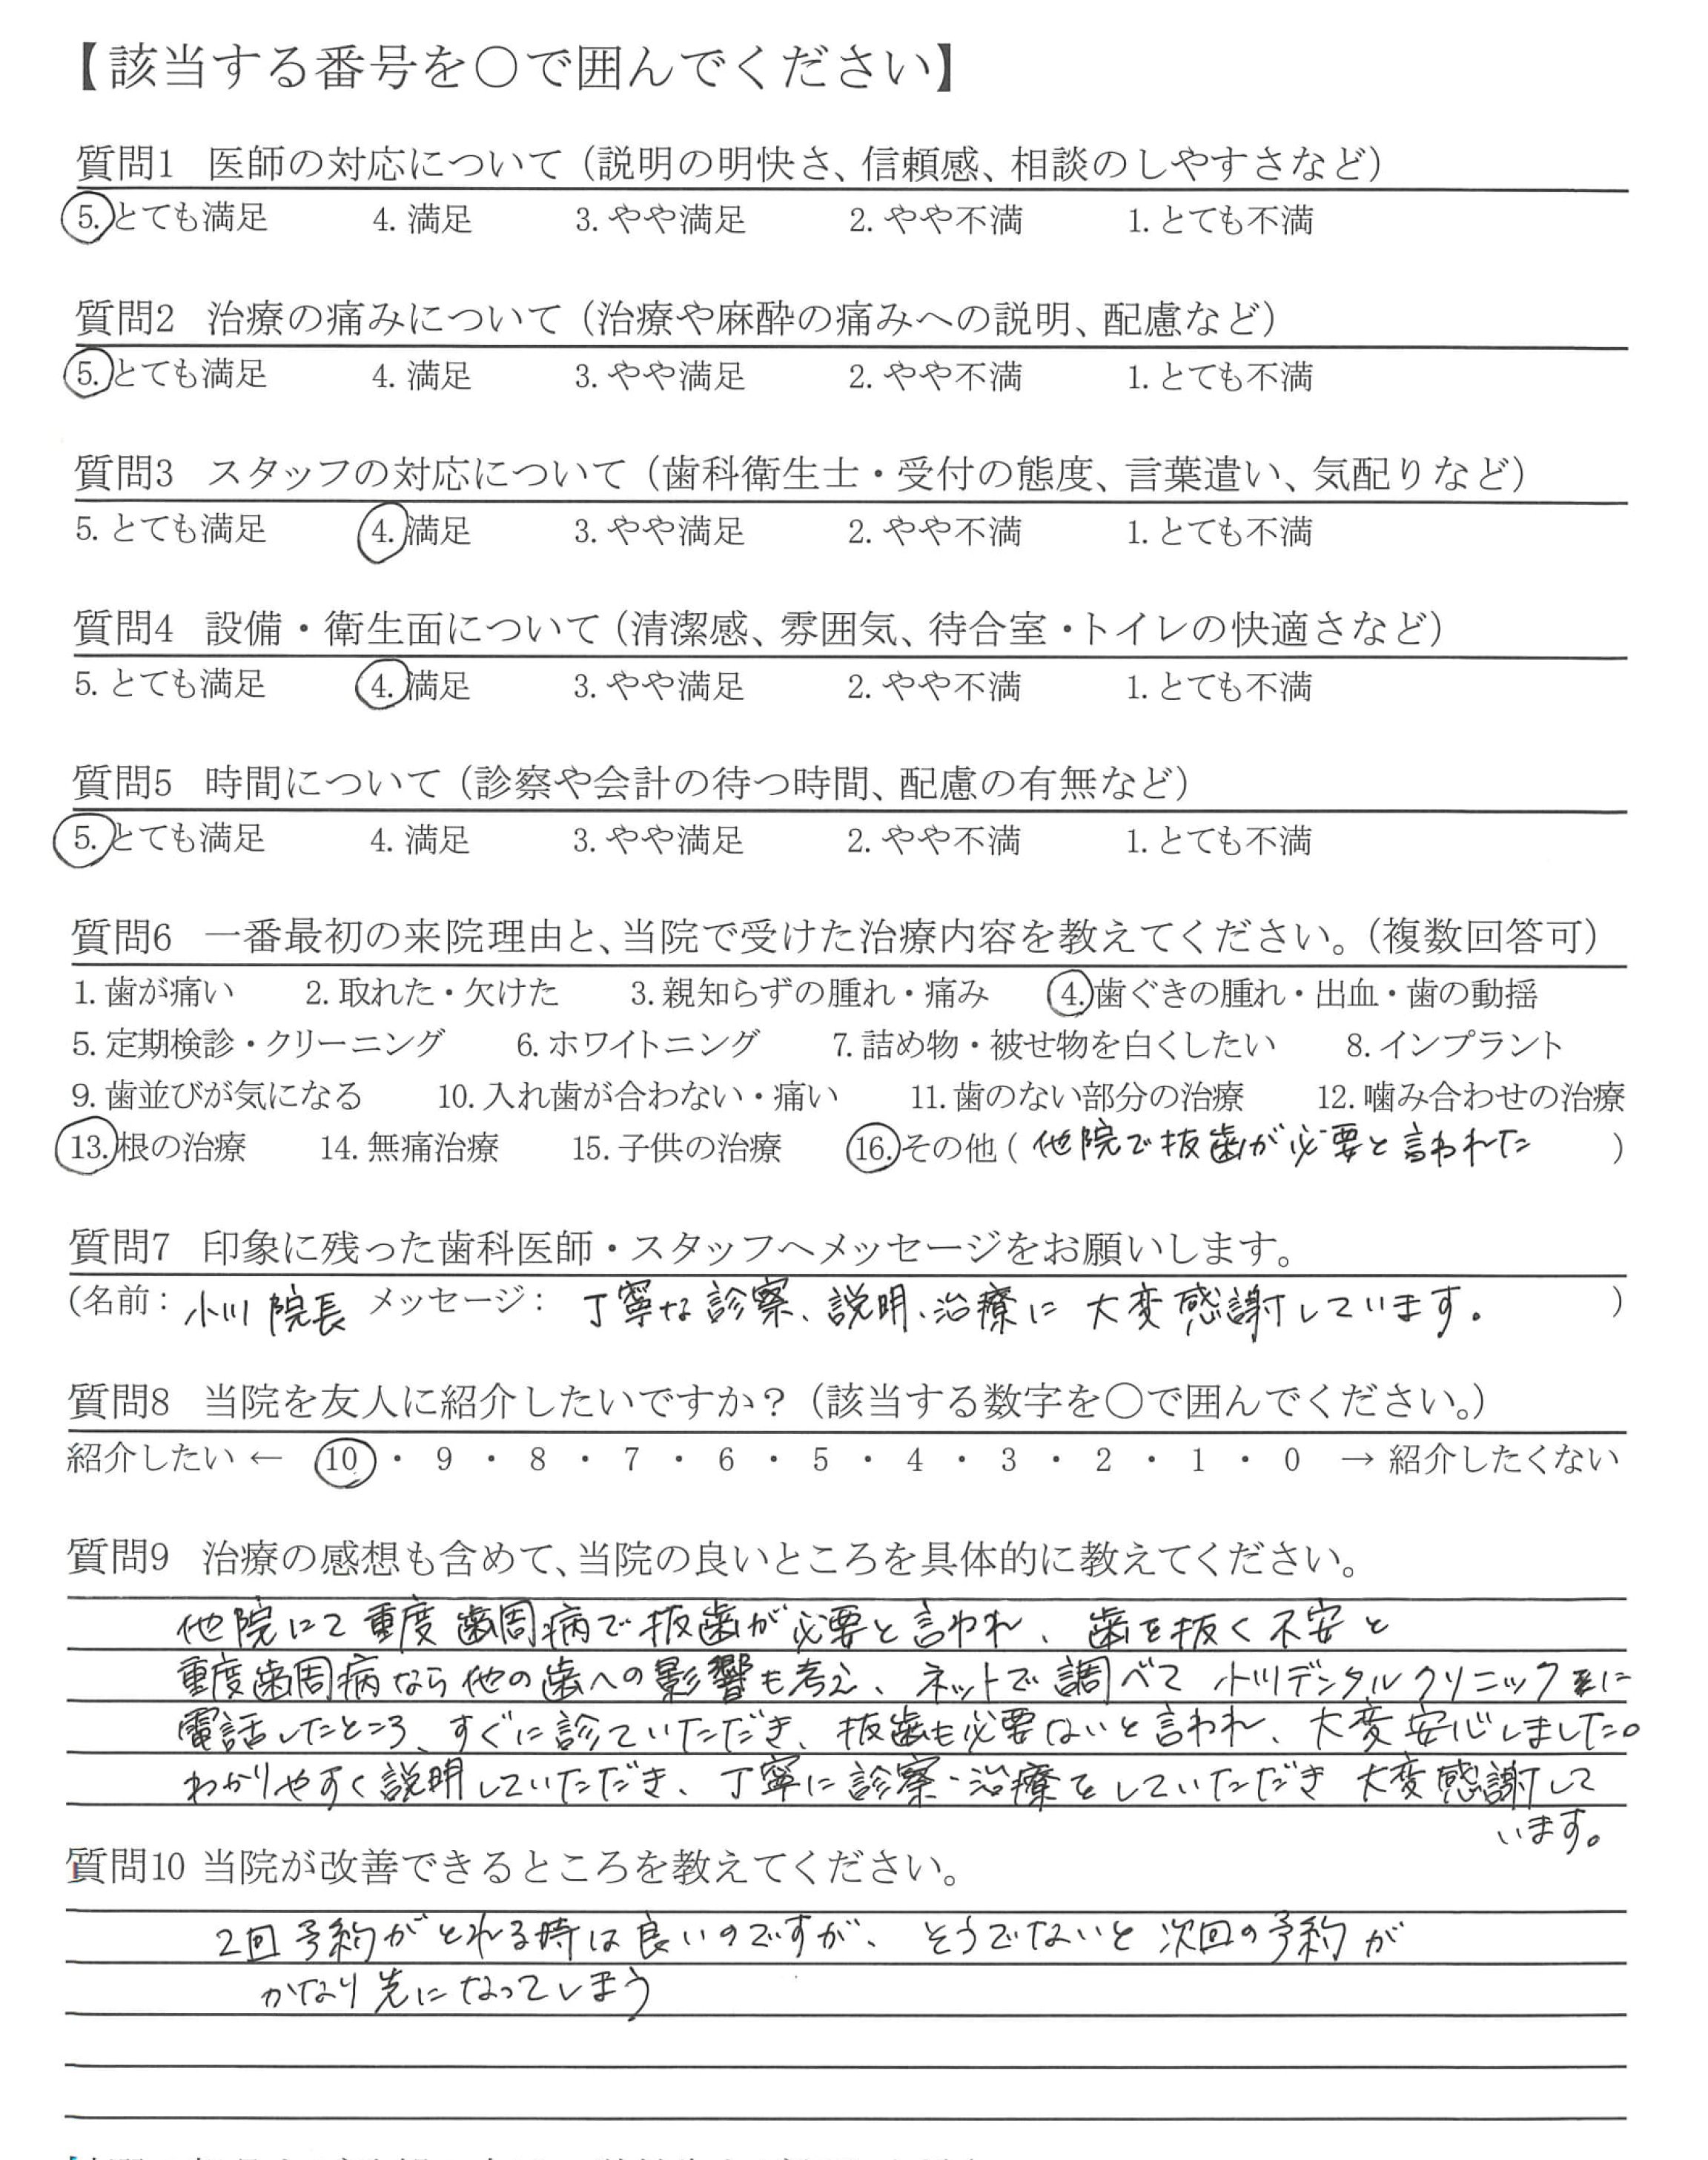 【該当する番号を〇で囲んでください】
質問1 医師の対応について（説明の明快さ、信頼感、相談のしやすさなど）
5. とても満足 4. 満足 3. やや満足 2. やや不満 1. とても不満
質問2 治療の痛みについて（治療や麻酔の痛みへの説明、配慮など）
5. とても満足 4. 満足 3. やや満足 2. やや不満 1. とても不満
質問3 スタッフの対応について（歯科衛生士・受付の態度、言葉遣い、気配りなど）
5. とても満足 4. 満足 3. やや満足 2. やや不満 1. とても不満
質問4 設備・衛生面について（清潔感、雰囲気、待合室・トイレの快適さなど）
5. とても満足 4. 満足 3. やや満足 2. やや不満 1. とても不満
質問5 時間について（診察や会計の待つ時間、配慮の有無など）
5. とても満足 4. 満足 3. やや満足 2. やや不満 1. とても不満
質問6 一番最初の来院理由と、当院で受けた治療内容を教えてください。（複数回答可）
1. 歯が痛い 2. 取れた・欠けた 3. 親知らずの腫れ・痛み 4. 歯ぐきの腫れ・出血・歯の動揺
5. 定期検診・クリーニング 6. ホワイトニング 7. 詰め物・被せ物を白くしたい 8. インプラント
9. 歯並びが気になる 10. 入れ歯が合わない・痛い 11. 歯のない部分の治療 12. 噛み合わせの治療
13. 根の治療 14. 無痛治療 15. 子供の治療 16. その他（他院で抜歯が必要と言われた）
質問7 印象に残った歯科医師・スタッフへメッセージをお願いします。
（名前：小川院長 メッセージ：丁寧な診察、説明、治療に大変感謝しています。）
質問8 当院を友人に紹介したいですか？（該当する数字を〇で囲んでください。）
紹介したい ← 10 ・ 9 ・ 8 ・ 7 ・ 6 ・ 5 ・ 4 ・ 3 ・ 2 ・ 1 ・ 0 → 紹介したくない
質問9 治療の感想も含めて、当院の良いところを具体的に教えてください。
他院にて重度歯周病で抜歯が必要と言われ、歯を抜く不安と
重度歯周病なら他の歯への影響も考え、ネットで調べて小川デンタルクリニックに
電話したところ、すぐに診ていただき、抜歯も必要ないと言われ、大変安心しました。
わかりやすく説明していただき、丁寧に診察・治療をしていただき大変感謝して
います。
質問10 当院が改善できるところを教えてください。
2回予約がとれる時は良いのですが、そうでないと次回の予約が
かなり先になってしまう